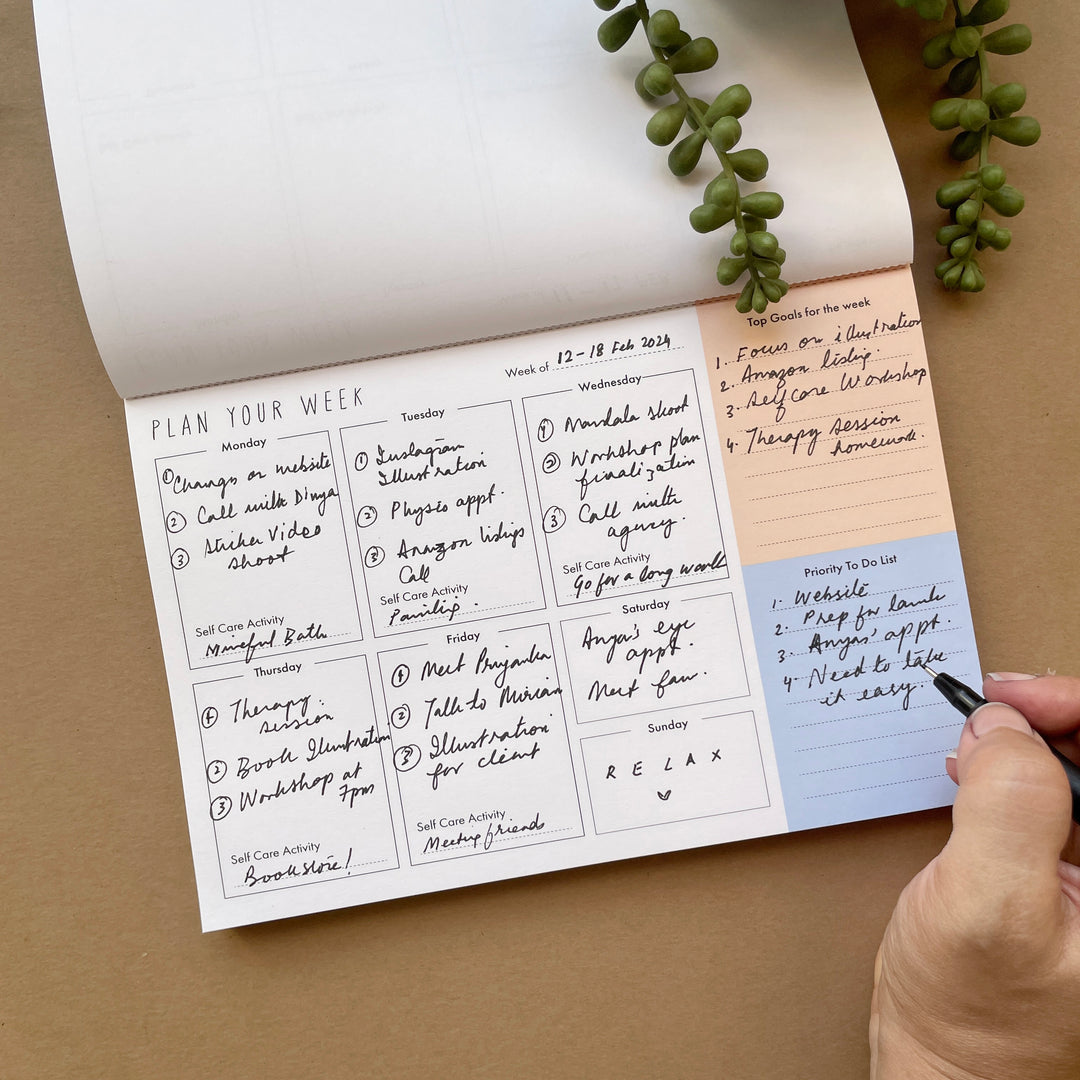 PLAN YOUR WEEK
Week of 12-18 Feb 2024
Monday
① Changes on website
② Call with Divya
③ Sticker Video
shoot
Self Care Activity
Mindful Bath
Tuesday
① Instagram
Illustration
② Physio appt.
③ Amazon listings
Call
Self Care Activity
Painting.
Wednesday
① Mandala shoot
② Workshop plan
finalization
③ Call with
agency.
Self Care Activity
Go for a long walk
Thursday
① Therapy
session
② Book Illustration
③ Workshop at
7pm
Self Care Activity
Bookstore!
Friday
① Meet Priyanka
② Talk to Miriam
③ Illustration
for client
Self Care Activity
Meeting friends
Saturday
Anya's eye
appt.
Meet fam.
Sunday
RELAX
Top Goals for the week
1. Focus on illustration
2. Amazon listing.
3. Self care Workshop
4. Therapy session
homework.
Priority To Do List
1. Website
2. Prep for
3. Anyas' appt.
4. Need to take
it easy.